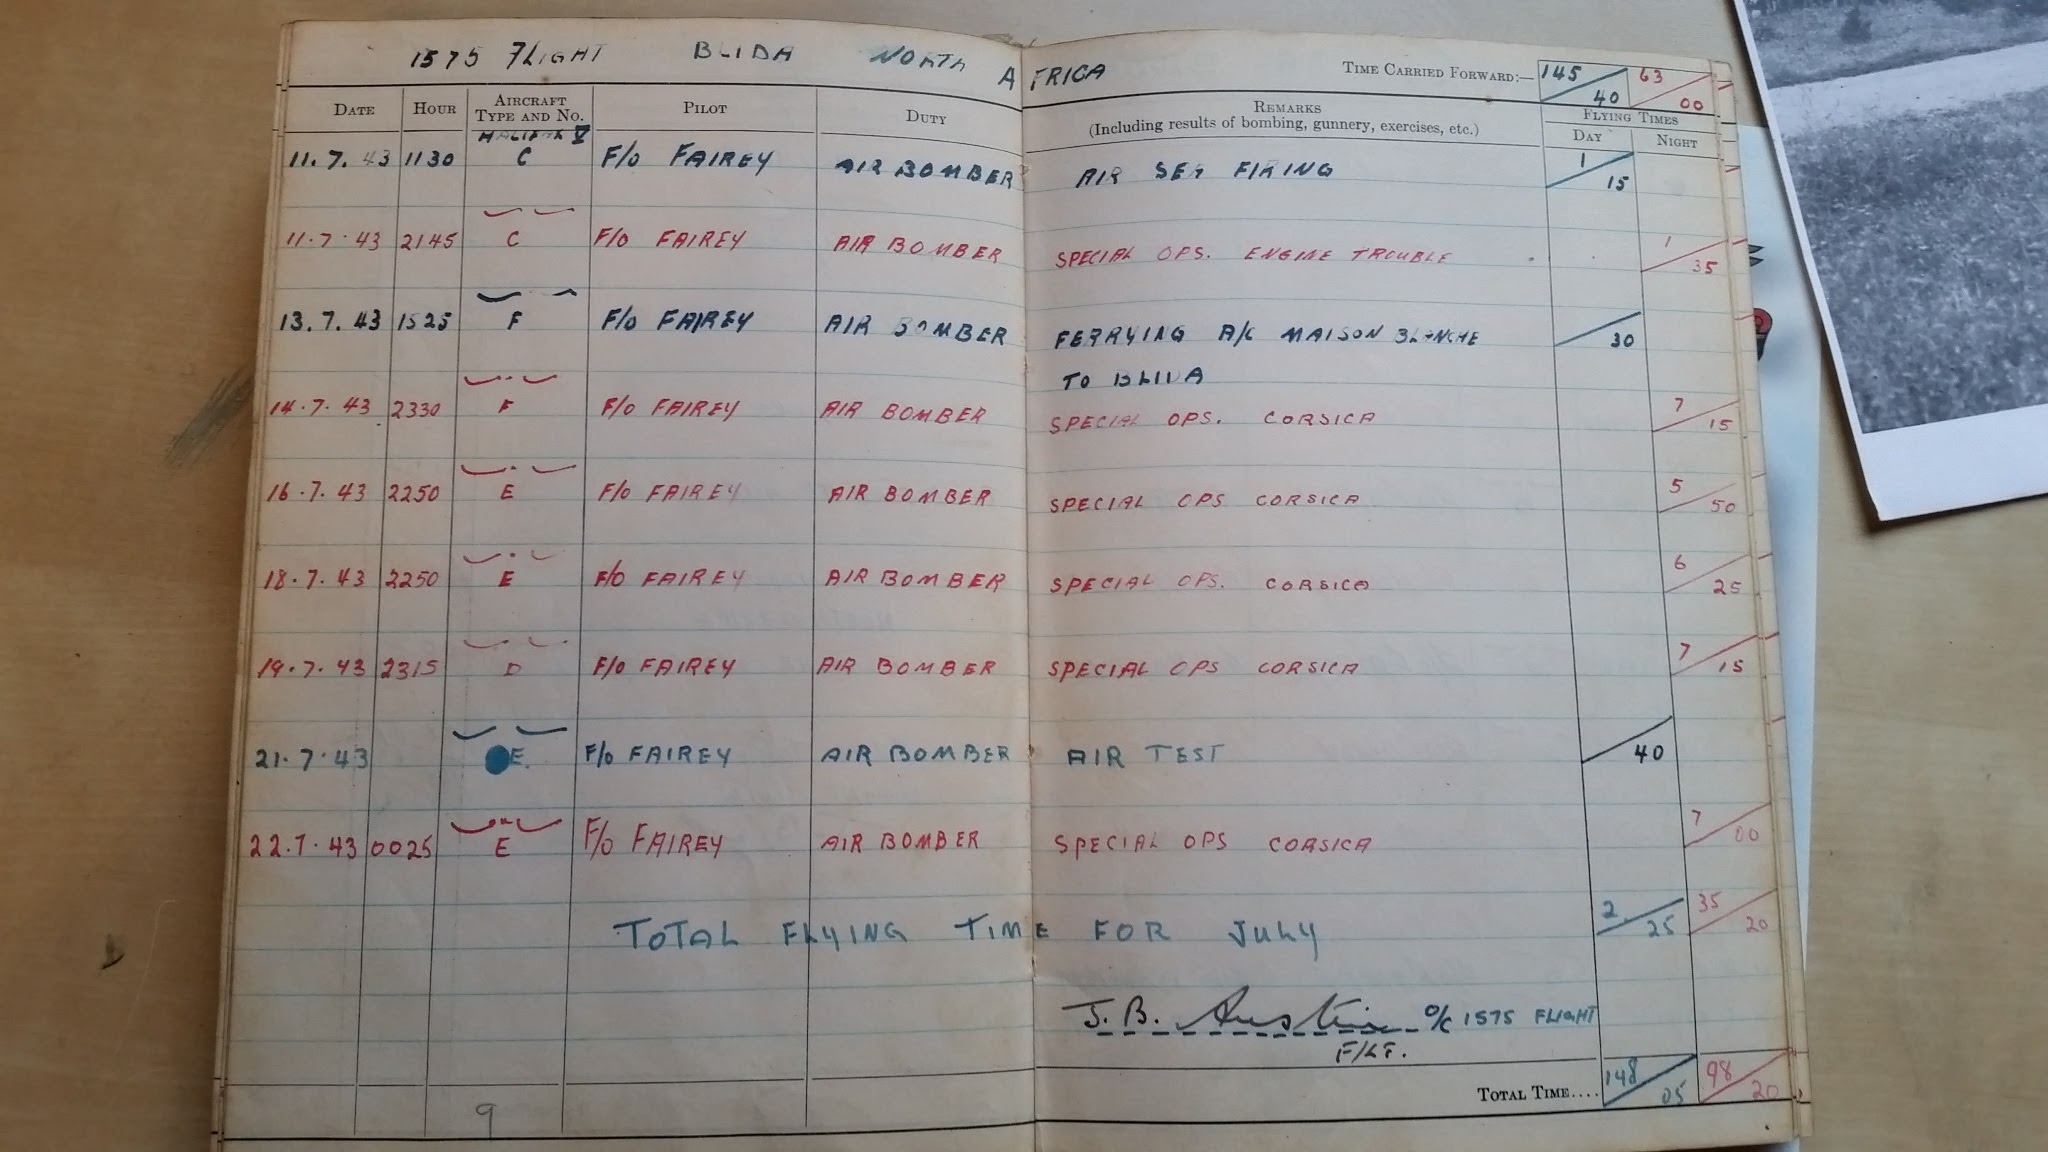 1575 FLIGHT BLIDA NORTH AFRICA TIME CARRIED FORWARD:— 145/40 63/00
DATE HOUR AIRCRAFT TYPE AND NO. PILOT DUTY REMARKS (Including results of bombing, gunnery, exercises, etc.) FLYING TIMES DAY NIGHT
HALIFAX V
11.7.43 1130 C F/O FAIREY AIR BOMBER AIR SEA FIRING 1/15
11.7.43 2145 C F/O FAIREY AIR BOMBER SPECIAL OPS. ENGINE TROUBLE 1/35
13.7.43 1525 F F/O FAIREY AIR BOMBER FERRYING A/C MAISON BLANCHE 30
TO BLIDA
14.7.43 2330 F F/O FAIREY AIR BOMBER SPECIAL OPS. CORSICA 7/15
16.7.43 2250 E F/O FAIREY AIR BOMBER SPECIAL OPS CORSICA 5/50
18.7.43 2250 E F/O FAIREY AIR BOMBER SPECIAL OPS. CORSICA 6/25
19.7.43 2315 D F/O FAIREY AIR BOMBER SPECIAL OPS CORSICA 7/15
21.7.43 E. F/O FAIREY AIR BOMBER AIR TEST 40
22.7.43 0025 E F/O FAIREY AIR BOMBER SPECIAL OPS CORSICA 7/00
TOTAL FLYING TIME FOR JULY 2/25 35/20
J.B. Austin O/C 1575 FLIGHT
F/LT.
TOTAL TIME.... 148/05 98/20
9